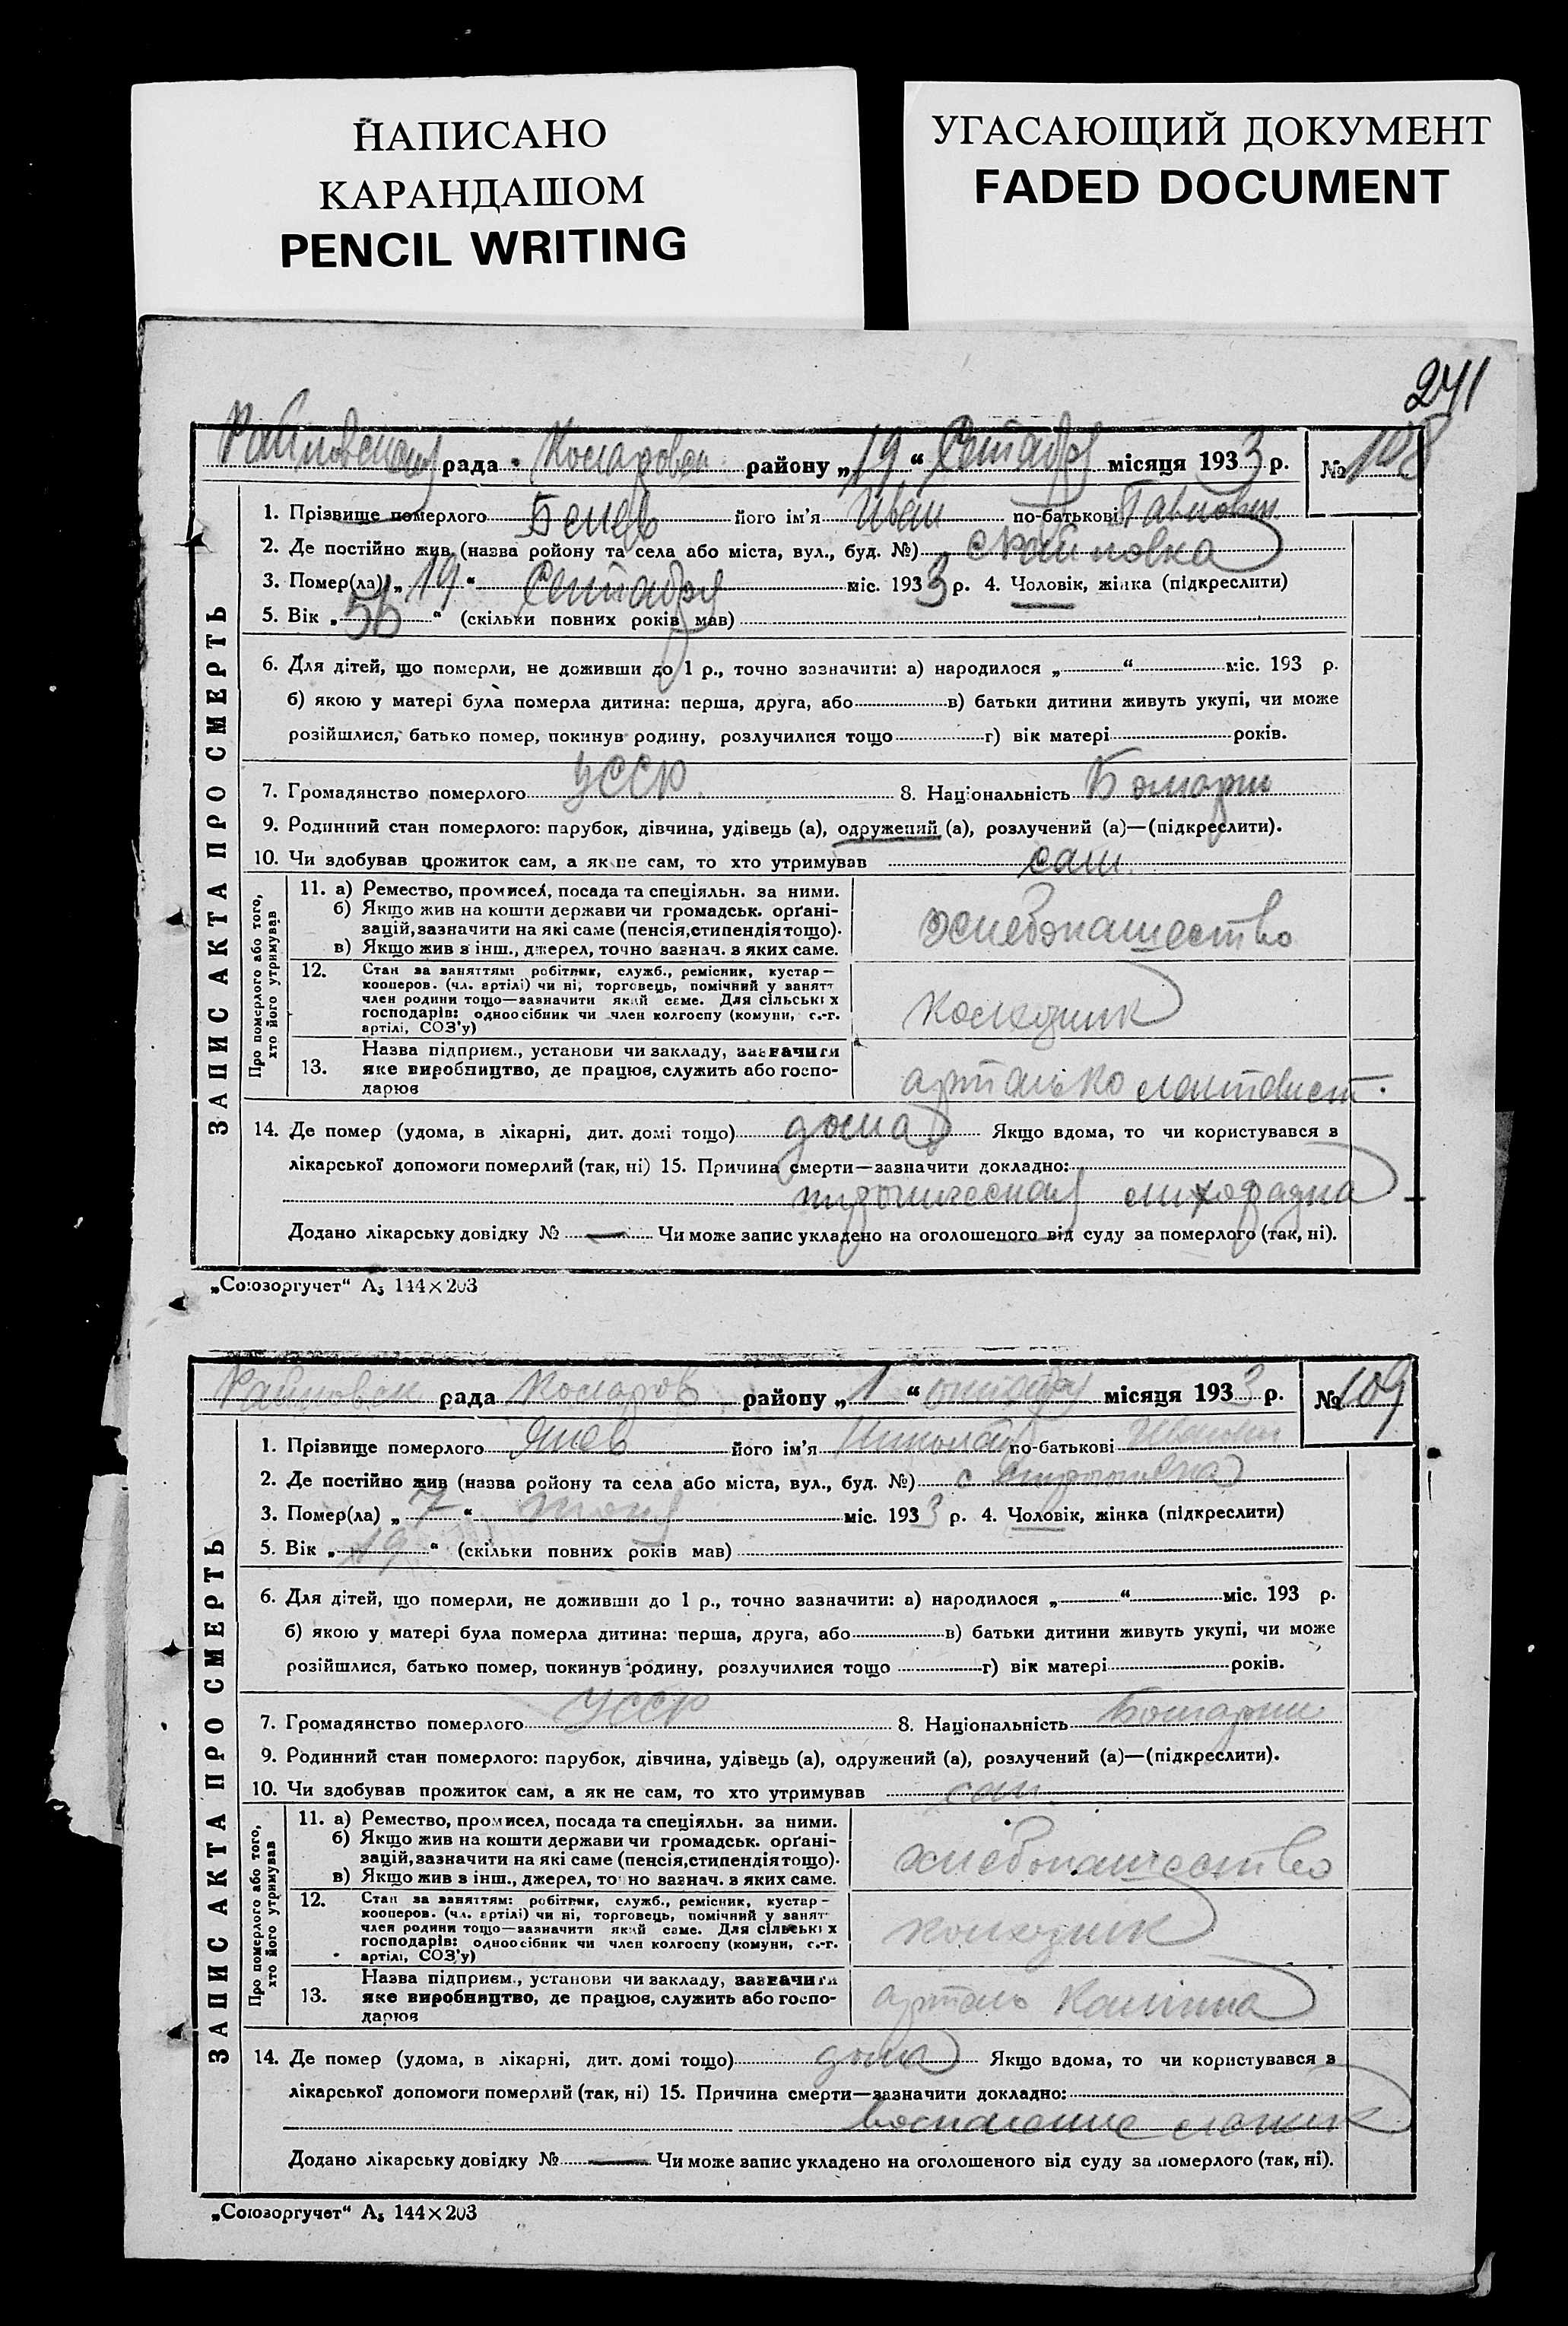 НАПИСАНО
КАРАНДАШОМ
PENCIL WRITING
УГАСАЮЩИЙ ДОКУМЕНТ
FADED DOCUMENT
241
рада району „19“ Сентября місяця 1933 р. № 108
1. Прізвище померлого Бенев його ім'я Иван по-батькові Павлович
2. Де постійно жив (назва ройону та села або міста, вул., буд. №)
3. Помер(ла) „19“ Сентября міс. 1933 р. 4. Чоловік, жінка (підкреслити)
5. Вік „56“ (скільки повних років мав)
6. Для дітей, що померли, не доживши до 1 р., точно зазначити: а) народилося „ “ міс. 193 р.
б) якою у матері була померла дитина: перша, друга, або в) батьки дитини живуть укупі, чи може
розійшлися, батько помер, покинув родину, розлучилися тощо г) вік матері років.
7. Громадянство померлого УССР 8. Національність
9. Родинний стан померлого: парубок, дівчина, удівець (а), одружений (а), розлучений (а)—(підкреслити).
10. Чи здобував прожиток сам, а як не сам, то хто утримував сам
ЗАПИС АКТА ПРО СМЕРТЬ
Про померлого або того,
хто його утримував
11. а) Ремество, промисел, посада та спеціяльн. за ними.
б) Якщо жив на кошти держави чи громадськ. орґані-
зацій, зазначити на які саме (пенсія, стипендія тощо).
в) Якщо жив з інш., джерел, точно зазнач. з яких саме.
хлебопашество
12. Стан за заняттям: робітник, служб., ремісник, кустар—
кооперов. (чл. артілі) чи ні, торговець, помічний у занятт
член родини тощо—зазначити який саме. Для сільських
господарів: одноосібник чи член колгоспу (комуни, с.-г.
артілі, СОЗ'у)
колхозник
13. Назва підприєм., установи чи закладу, зазначити
яке виробництво, де працює, служить або госпо-
дарює
14. Де помер (удома, в лікарні, дит. домі тощо) дома Якщо вдома, то чи користувався в
лікарської допомоги померлий (так, ні) 15. Причина смерти—зазначити докладно:
тропическая лихорадка
Додано лікарську довідку № — Чи може запис укладено на оголошеного від суду за померлого (так, ні).
„Союзоргучет“ А₅ 144×203
рада району „1“ октября місяця 1933 р. № 109
1. Прізвище померлого Янев його ім'я Николай по-батькові Иванович
2. Де постійно жив (назва ройону та села або міста, вул., буд. №) с
3. Помер(ла) „7“ міс. 1933 р. 4. Чоловік, жінка (підкреслити)
5. Вік „19“ (скільки повних років мав)
6. Для дітей, що померли, не доживши до 1 р., точно зазначити: а) народилося „ “ міс. 193 р.
б) якою у матері була померла дитина: перша, друга, або в) батьки дитини живуть укупі, чи може
розійшлися, батько помер, покинув родину, розлучилися тощо г) вік матері років.
7. Громадянство померлого УССР 8. Національність
9. Родинний стан померлого: парубок, дівчина, удівець (а), одружений (а), розлучений (а)—(підкреслити).
10. Чи здобував прожиток сам, а як не сам, то хто утримував сам
ЗАПИС АКТА ПРО СМЕРТЬ
Про померлого або того,
хто його утримував
11. а) Ремество, промисел, посада та спеціяльн. за ними.
б) Якщо жив на кошти держави чи громадськ. орґані-
зацій, зазначити на які саме (пенсія, стипендія тощо).
в) Якщо жив з інш., джерел, точно зазнач. з яких саме.
хлебопашество
12. Стан за заняттям: робітник, служб., ремісник, кустар—
кооперов. (чл. артілі) чи ні, торговець, помічний у занятт
член родини тощо—зазначити який саме. Для сільських
господарів: одноосібник чи член колгоспу (комуни, с.-г.
артілі, СОЗ'у)
колхозник
13. Назва підприєм., установи чи закладу, зазначити
яке виробництво, де працює, служить або госпо-
дарює
артель Калинина
14. Де помер (удома, в лікарні, дит. домі тощо) дома Якщо вдома, то чи користувався в
лікарської допомоги померлий (так, ні) 15. Причина смерти—зазначити докладно:
воспаление легких
Додано лікарську довідку № — Чи може запис укладено на оголошеного від суду за померлого (так, ні).
„Союзоргучет“ А₅ 144×203